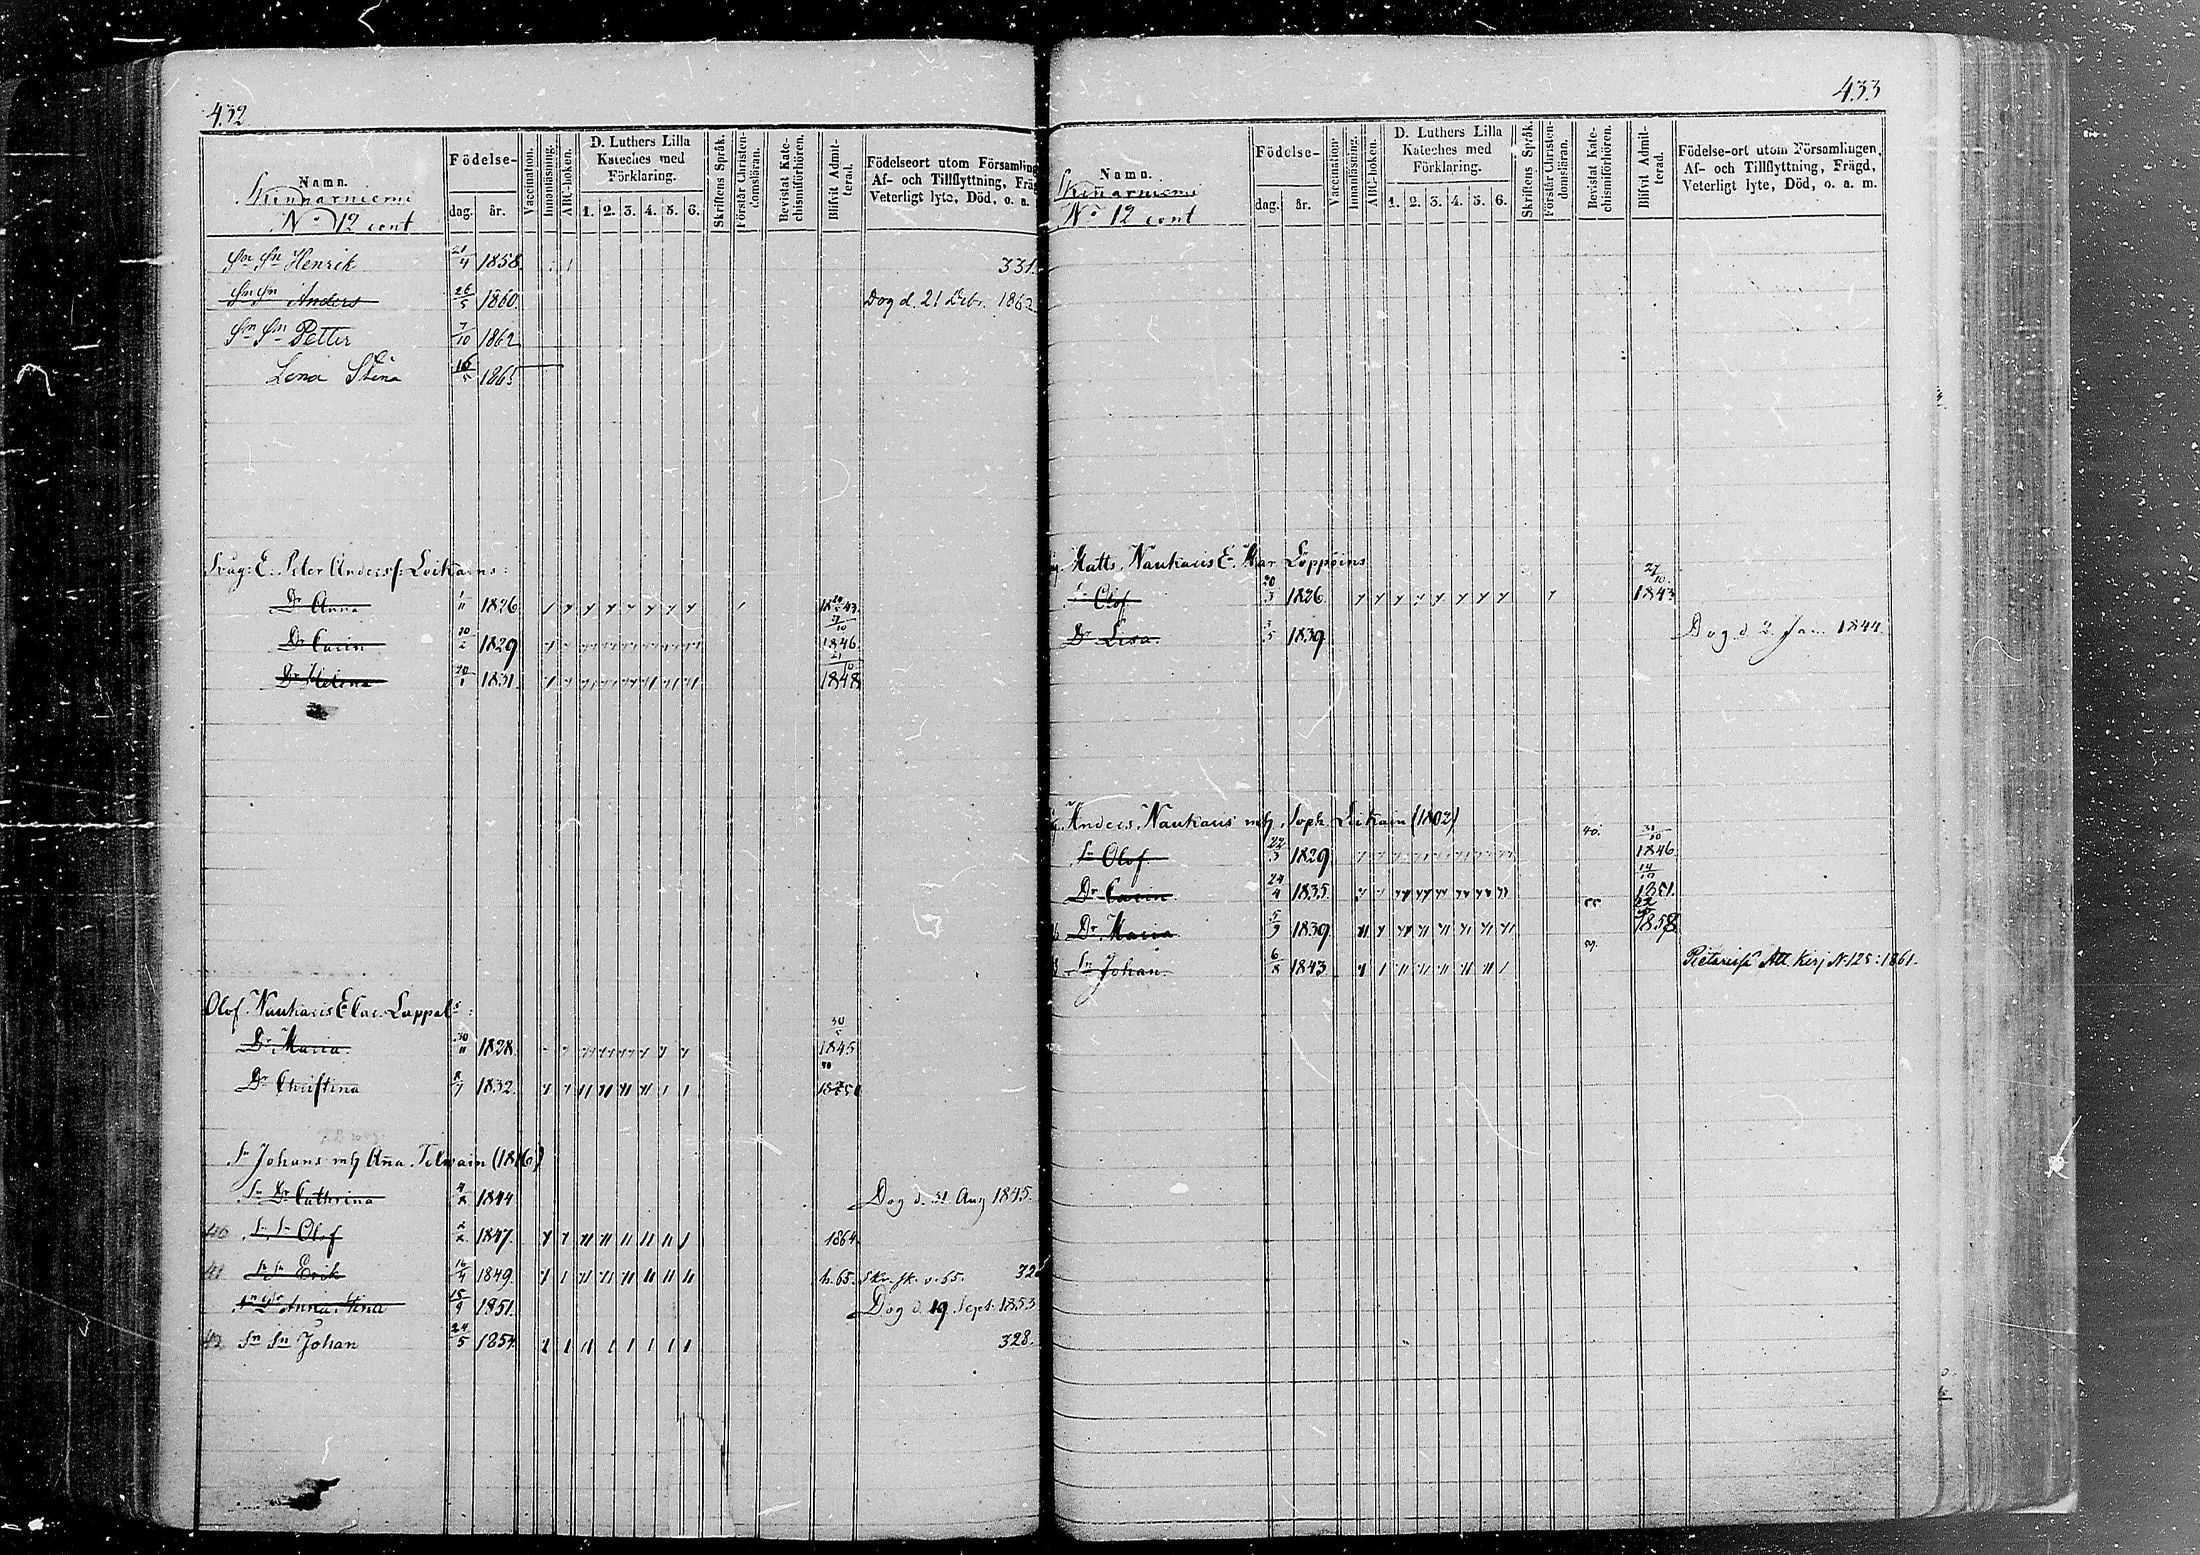 432
Namn.
No 12 cont
Födelse-
dag. år.
Vaccination.
Innanläsning.
ABC-boken.
D. Luthers Lilla
Kateches med
Förklaring.
1. 2. 3. 4. 5. 6.
Skriftens Språk.
Förstår Christen-
domsläran.
Bevistat Kate-
chismiförhören.
Blifvit Admit-
terad.
Födelseort utom Församling
Af- och Tillflyttning, Fräg
Veterligt lyte, Död, o. a.
Sn Sn Henrik 21/4 1858. 331.
Sn Sn Anders 26/5 1860. Dog d. 21 Debr. 1862
Sn Sn Petter 7/10 1862
Lena Stina 16/5 1865
Svåg: E. Peter Andersf: Loikains:
Dr Anna 1/11 1826 1843
Dr Carin 10/2 1829 1846
Dr Helena 20/1 1831 21/10 1848
Olof Naukaris E Car. Lappals:
Dr Maria. 30/11 1828 30/5 1845
Dr Christina 8/7 1832
Sn Johans mh Aña (1816)
Sn Dr Cathrina 4/8 1844 Dog d. 31 Aug 1845.
Sn Sn Olof 2/2 1847. 1864.
41 Sn Sn Erik 16/4 1849. h.65. v. 65. 32
Sn Dr Anna Stina 15/9 1851. Dog d. 19 Sept. 1853
42 Sn Sn Johan 24/5 1854 328.
433
Namn.
Skinnarniemi
No 12 cont
Födelse-
dag. år.
Vaccination
Innanläsning.
ABC-boken.
D. Luthers Lilla
Kateches med
Förklaring.
1. 2. 3. 4. 5. 6.
Skriftens Språk.
Förstår Christen-
domsläran.
Bevistat Kate-
chismiförhören.
Blifvit Admit-
terad.
Födelse-ort utom Församlingen,
Af- och Tillflyttning, Frägd,
Veterligt lyte, Död, o. a. m.
Matts Naukaris E. Mar. Löppöins
Sn Olof 20/3 1826 27/10 1843
Dr Lisa. 3/5 1839 Dog d 2 Jan. 1844.
Anders Naukaris mh Soph. Loikain (1802)
Sn Olof 22/3 1829 40. 31/10 1846
Dr Carin 24/4 1835 14/10 1851.
Dr Maria 5/9 1839 1858
Sn Johan. 6/8 1843 59. Att. Kirj N:125:1861.